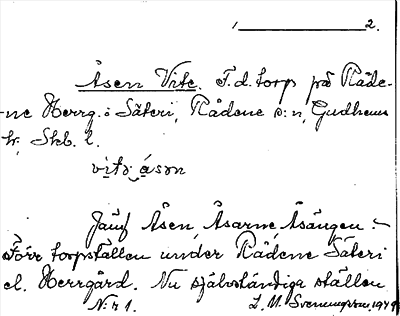 1 ________ 2.
Åsen Vite. F. d. torp på Råde-
ne Herrg. i Säteri, Rådene s:n, Gudhems
h; Skb. l.
vitə åsən
Jämf Åsen, Åsarne, Åsängen. -
Förr torpställen under Rådene Säteri
el. Herrgård. Nu självständiga ställen
N:r 1. L. M. Svenungsson, 1949